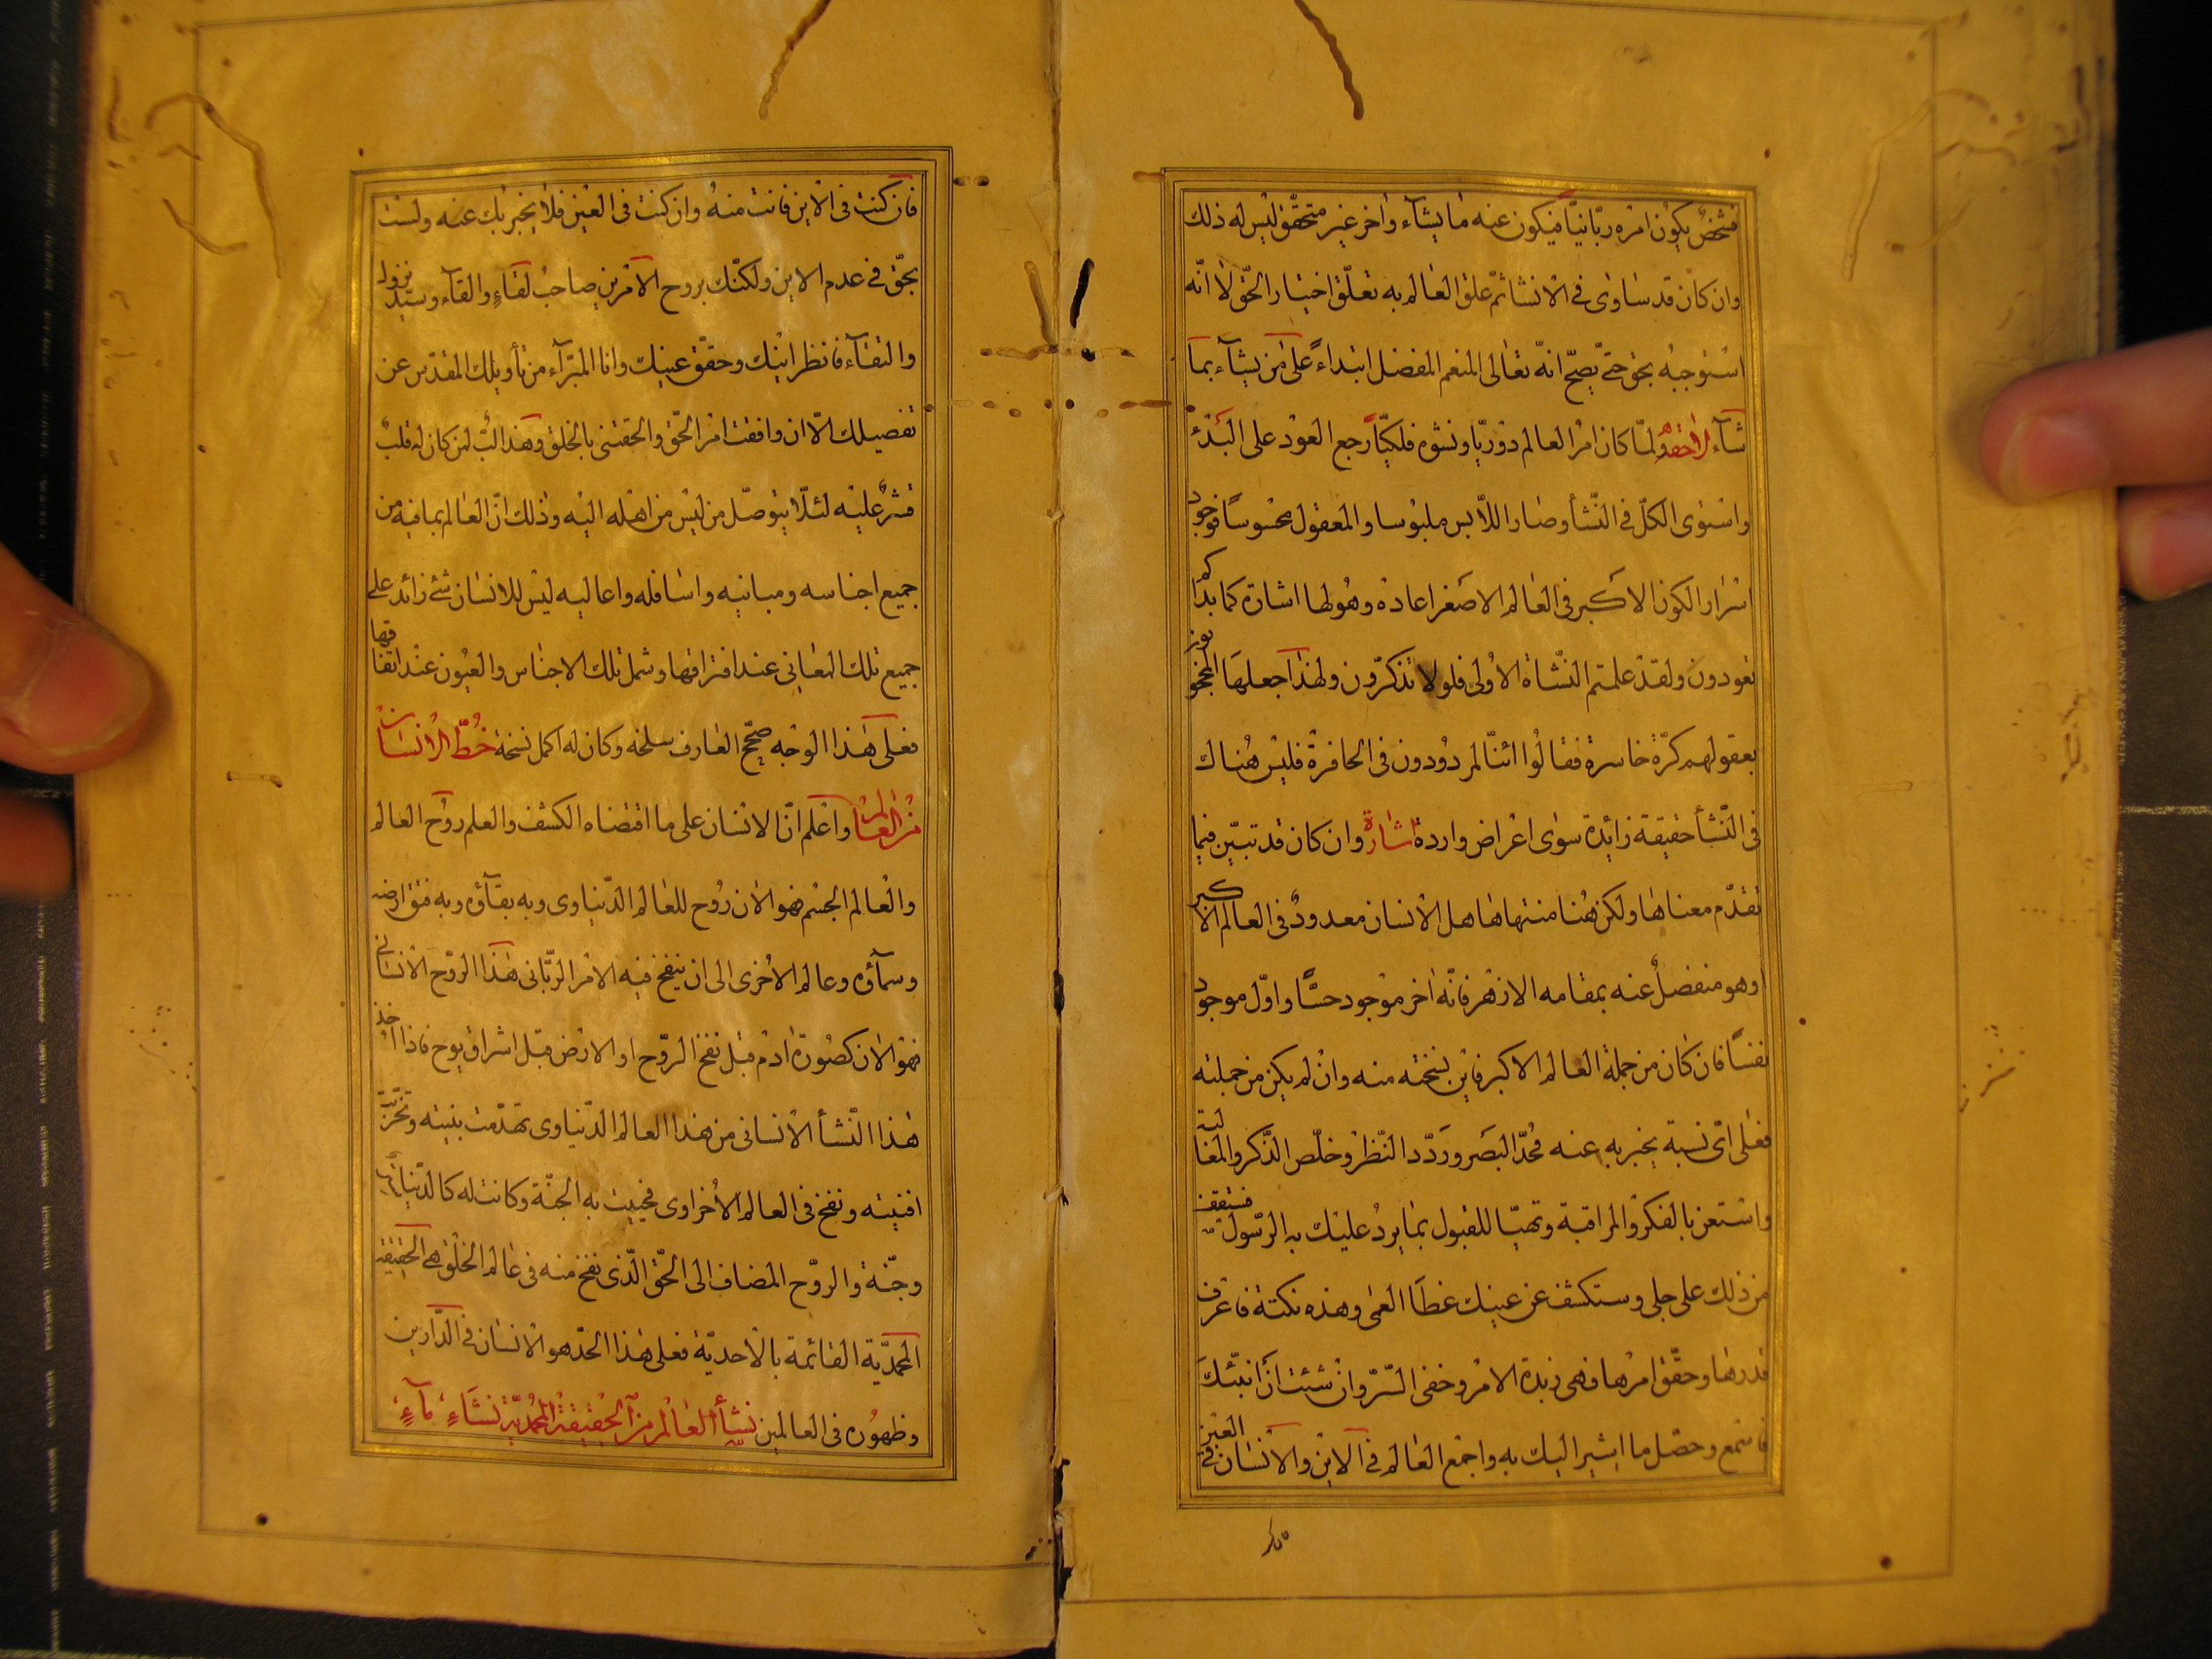 فشخصٌ يكون امره ربّانيّا فيكون عنه ما يشآء واٰخر غير متحقّق ليس له ذلك
وان كان قد ساوى فى الانشا ثمّ علق العالم به تعلّق اختيار الحقّ لا انّه
استوجبه بحق حتى يصحّ انه تعالى المنعم المفضل ابتداءً على من يشآء بما
شآء لاحقة ولمّا كان امر العالم دوريّا ونشوه فلكيّا رجع العود على البدء
واستوى الكلّ فى النّشأ وصار اللاّبس ملبوسا والمعقول محسوسا فوجود
اسرار الكون الاكبر فى العالم الاصغر اعادة وهو لها اشارة كما بداكم
تعودون ولقد علمتم النّشاة الاُولى فلولا تذكرّون ولهذا جعلها المحجوبون
بعقولهم كرّة خاسرة فقالُوا ائنّا لمردُودون فى الحافرة فليس هُناك
فى النّشأ حقيقة زائدة سوى اعراض واردة اشارة وان كان قد تبيّن فيما
تقدّم معناها ولكن هُنا منتهاها هل الانسان معدودٌ فى العالم الاكبر
او هو منفصلٌ عنه بمقامه الازهر فانّه اٰخر موجود حسًّا واوّل موجود
نفسًا فان كان من جملة العالم الاكبر فاين نسخته منه وان لم يكن من جملته
فعلى اىّ نسبة يخبر به عنه فحُدّ البصَر وردّد النّظر وخلّص الذّكر والمغالبة
واستعن بالفكر والمراقبة وتهيّا للقبول بما يردُ عليك به الرّسول فستقف
من ذلك على جلى وستكشف عن عينك غطا العمى وهذه نكتة فاعرف
قدرها وحقّق امرها فهى زبدة الامر وخفى السّرّ وان شئت ان انبّئك
فاسمع وحصّل ما اشير اليك به واجمع العالم فى الاين والانسان فى العين
فان كنت فى الاين فانت منهُ وان كنت فى العين فلا يخبر بك عنه ولست
بحقّ فى عدم الاين ولكنّك بروح الامرين صاحبُ لقاءٍ والقآء وسيّد نزول
والتقآء فانظر اينك وحقّق عينك وانا المبّرآء من تأويلك المقدّس عن
تفصيلك الاّ ان وافقت امر الحقّ والحقتنى بالخلق وهذا لبٌّ لمن كان له قلبٌ
قشرٌ عليه لئلّا يتوصّل من ليس من اهله اليه وذلك انّ العالم بما فيه من
جميع اجناسه ومبانيه واسافله واعاليه ليس للانسان شئ زائد على
جميع تلك المعانى عند افتراقها وشمل تلك الاجناس والعيون عند اتفاقها
فعلى هٰذا الوجه صحّح العارف سلخه وكان له اكمل نسخة خُطّ الانسان
من العالم واعلم انّ الانسان على ما اقتضاه الكشف والعلم روُح العالم
والعالم الجسم فهو الاٰن رُوح للعالم الدّنياوى وبه بقآؤه وبه فتق ارضه
وسمآؤه وعالم الاُخرى الى ان ينفخ فيه الامر الرّبّانى هٰذا الروّح الانسانى
فهو الاٰن كصُورة اٰدم قبل نفخ الروّح او الارض قبل اشراق يوح فاذا اُخذ
هٰذا النّشأ الانسانى من هذا العالم الدّنياوى تهدّمت بنيته وتخرّبت
افنيته ونفخ فى العالم الاُخراوى فحييت به الجنّة وكانت له كالدّنيا
وجنّة والروّح المضاف الى الحقّ الّذى نفخ منه فى عالم الخلق هى الحقيقة
المحمديّة القائمة بالاحديّة فعلى هٰذا الحدّ هو الانسان فى الدّارين
وظهوُره فى العالمين نشأ العالم من الحقيقة المحمديّة نشاءٍ، مآءٍ،